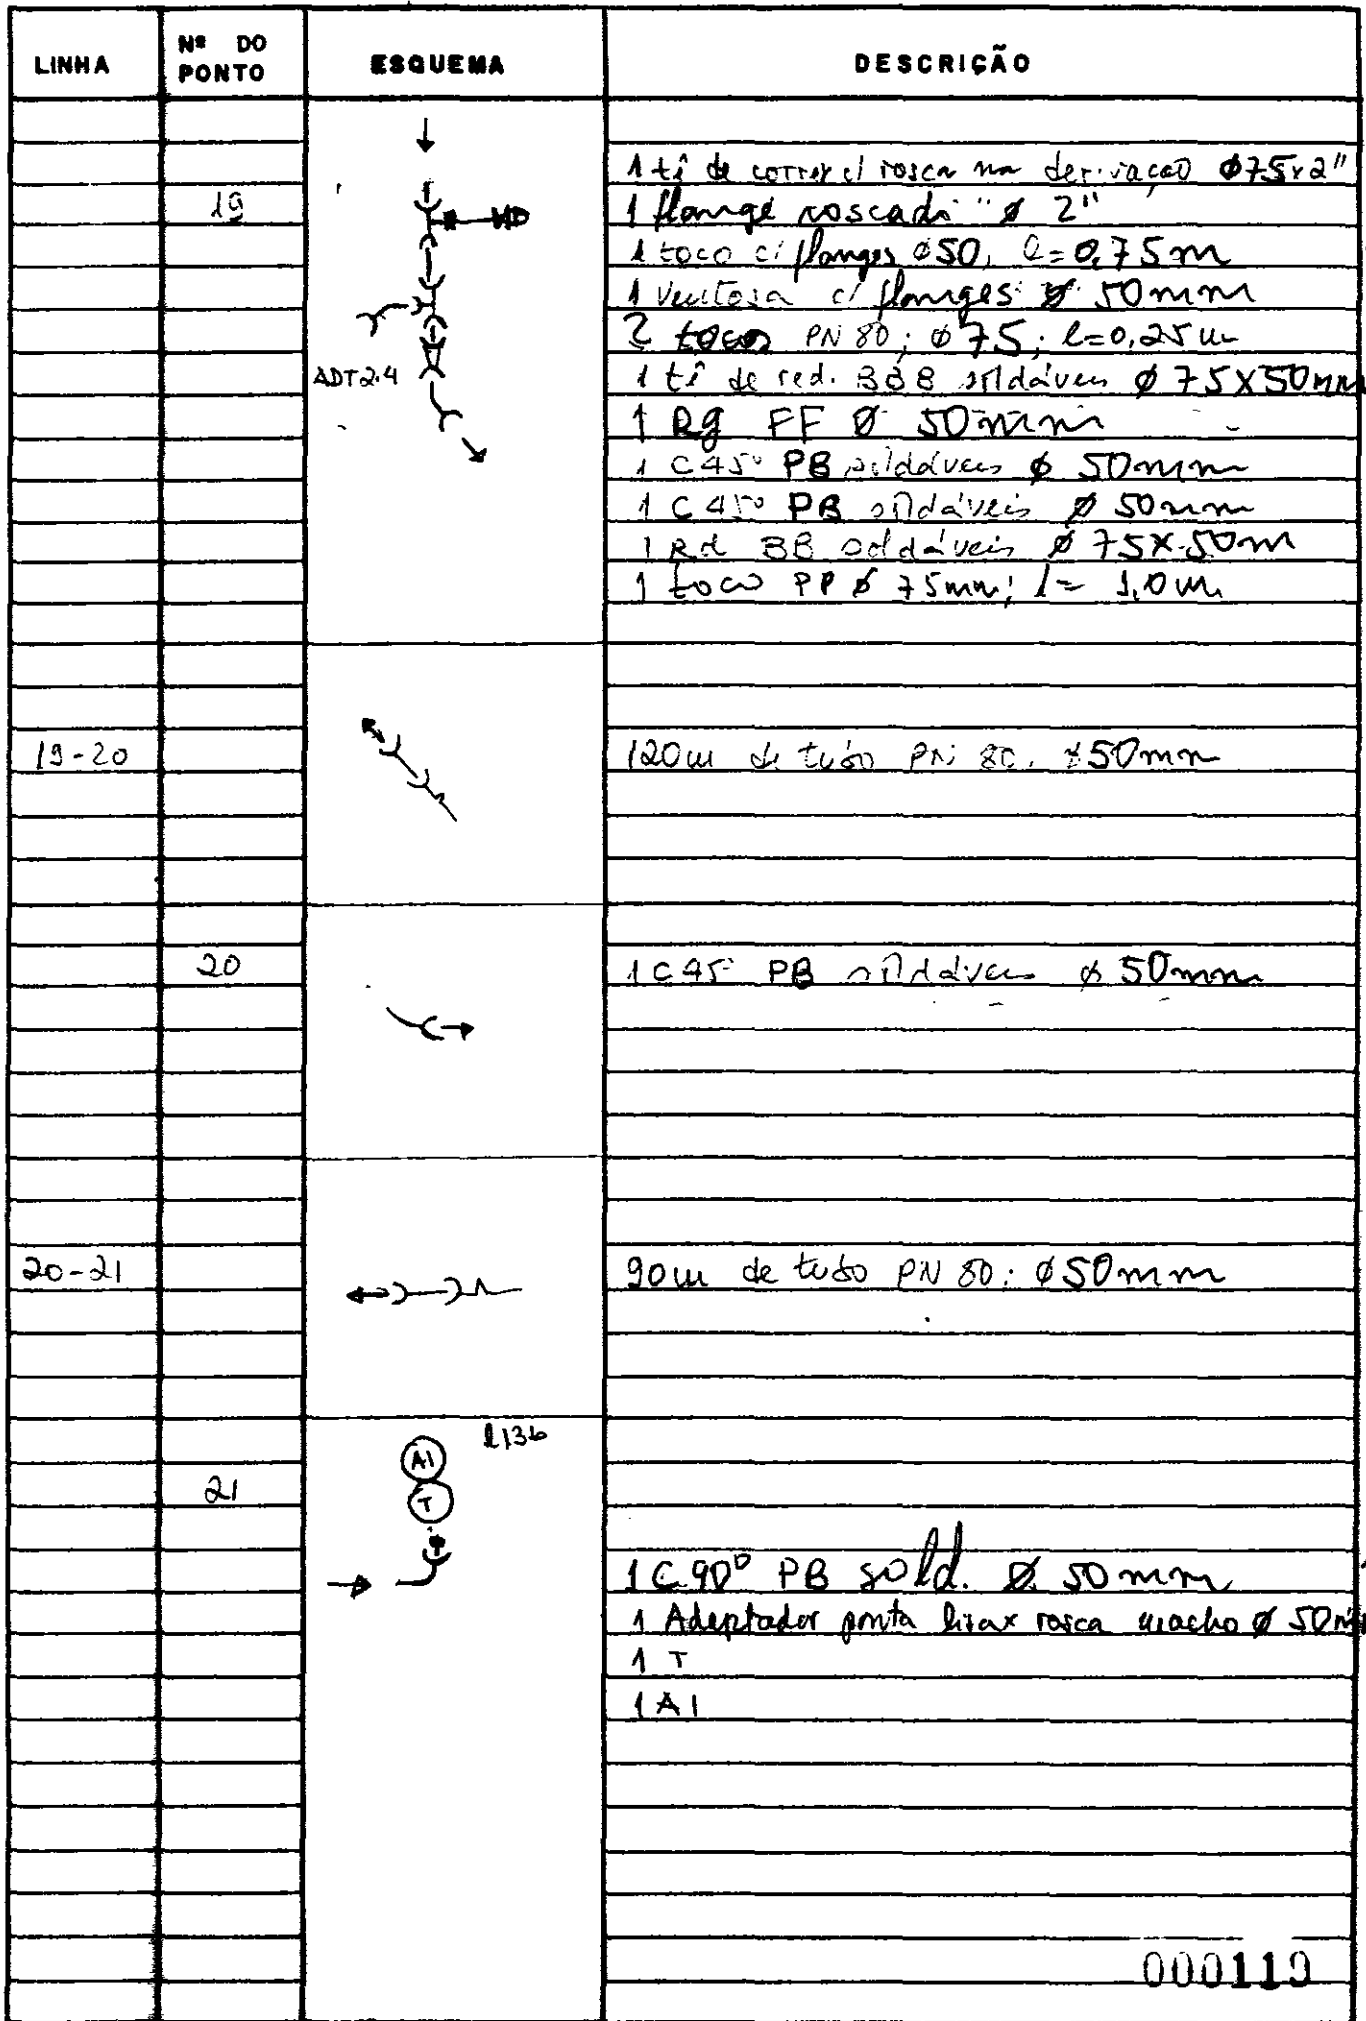 LINHA Nº DO PONTO ESQUEMA DESCRIÇÃO
1 tê de correr c/ rosca na derivação ø75x2"
19
1 flange roscado ø 2"
1 toco c/ flanges ø50, l=0,75m
1 Ventosa c/ flanges ø 50mm
2 tocos PN 80; ø75; l=0,25m
ADT2.4 1 tê de red. BBB soldáveis ø 75X50mm
1 Rg FF ø 50mm
1 C45° PB soldáveis ø 50mm
1 C45° PB soldáveis ø 50mm
1 Rd BB soldáveis ø 75X50m
1 toco PP ø 75mm; l= 1,0m
19-20 120m de tubo PN 80, ø50mm
20 1 C45° PB soldáveis ø 50mm
20-21 90m de tubo PN 80; ø50mm
AI
21 T
1 C.90° PB sold. ø 50mm
1 Adaptador ponta lisa x rosca macho ø 50m
1 T
1 AI
000119